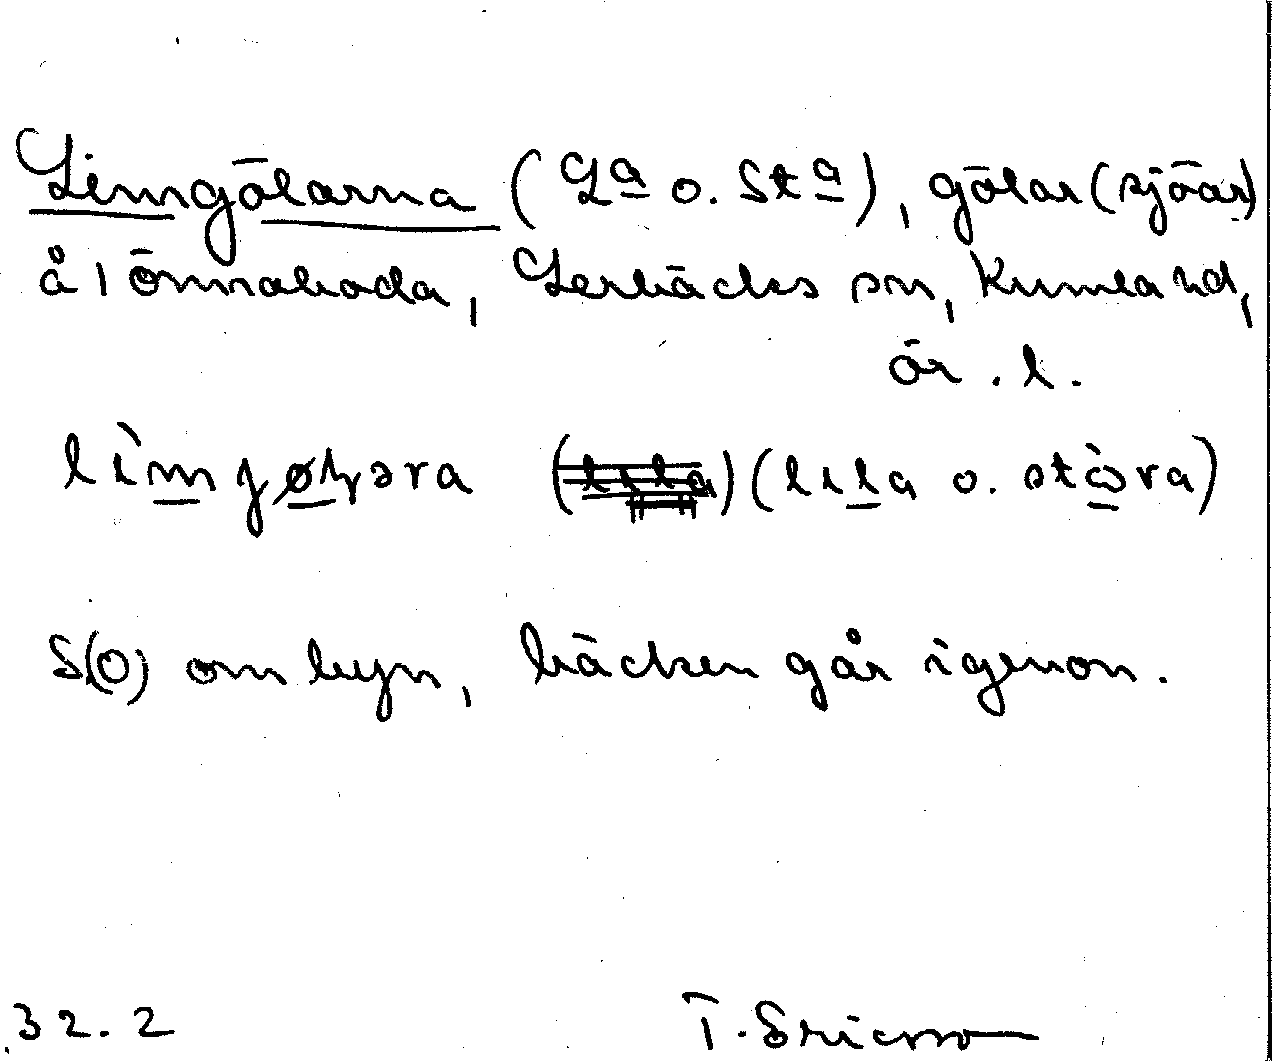 Limgölarna (La o. Sta), gölar (sjöar)
å 1 Önnaboda, Lerbäcks sn, Kumla hd,
ör. l.
(lɩla o. stòra)
S(O) om byn, bäcken går igenom.
32.2 T. Ericsson